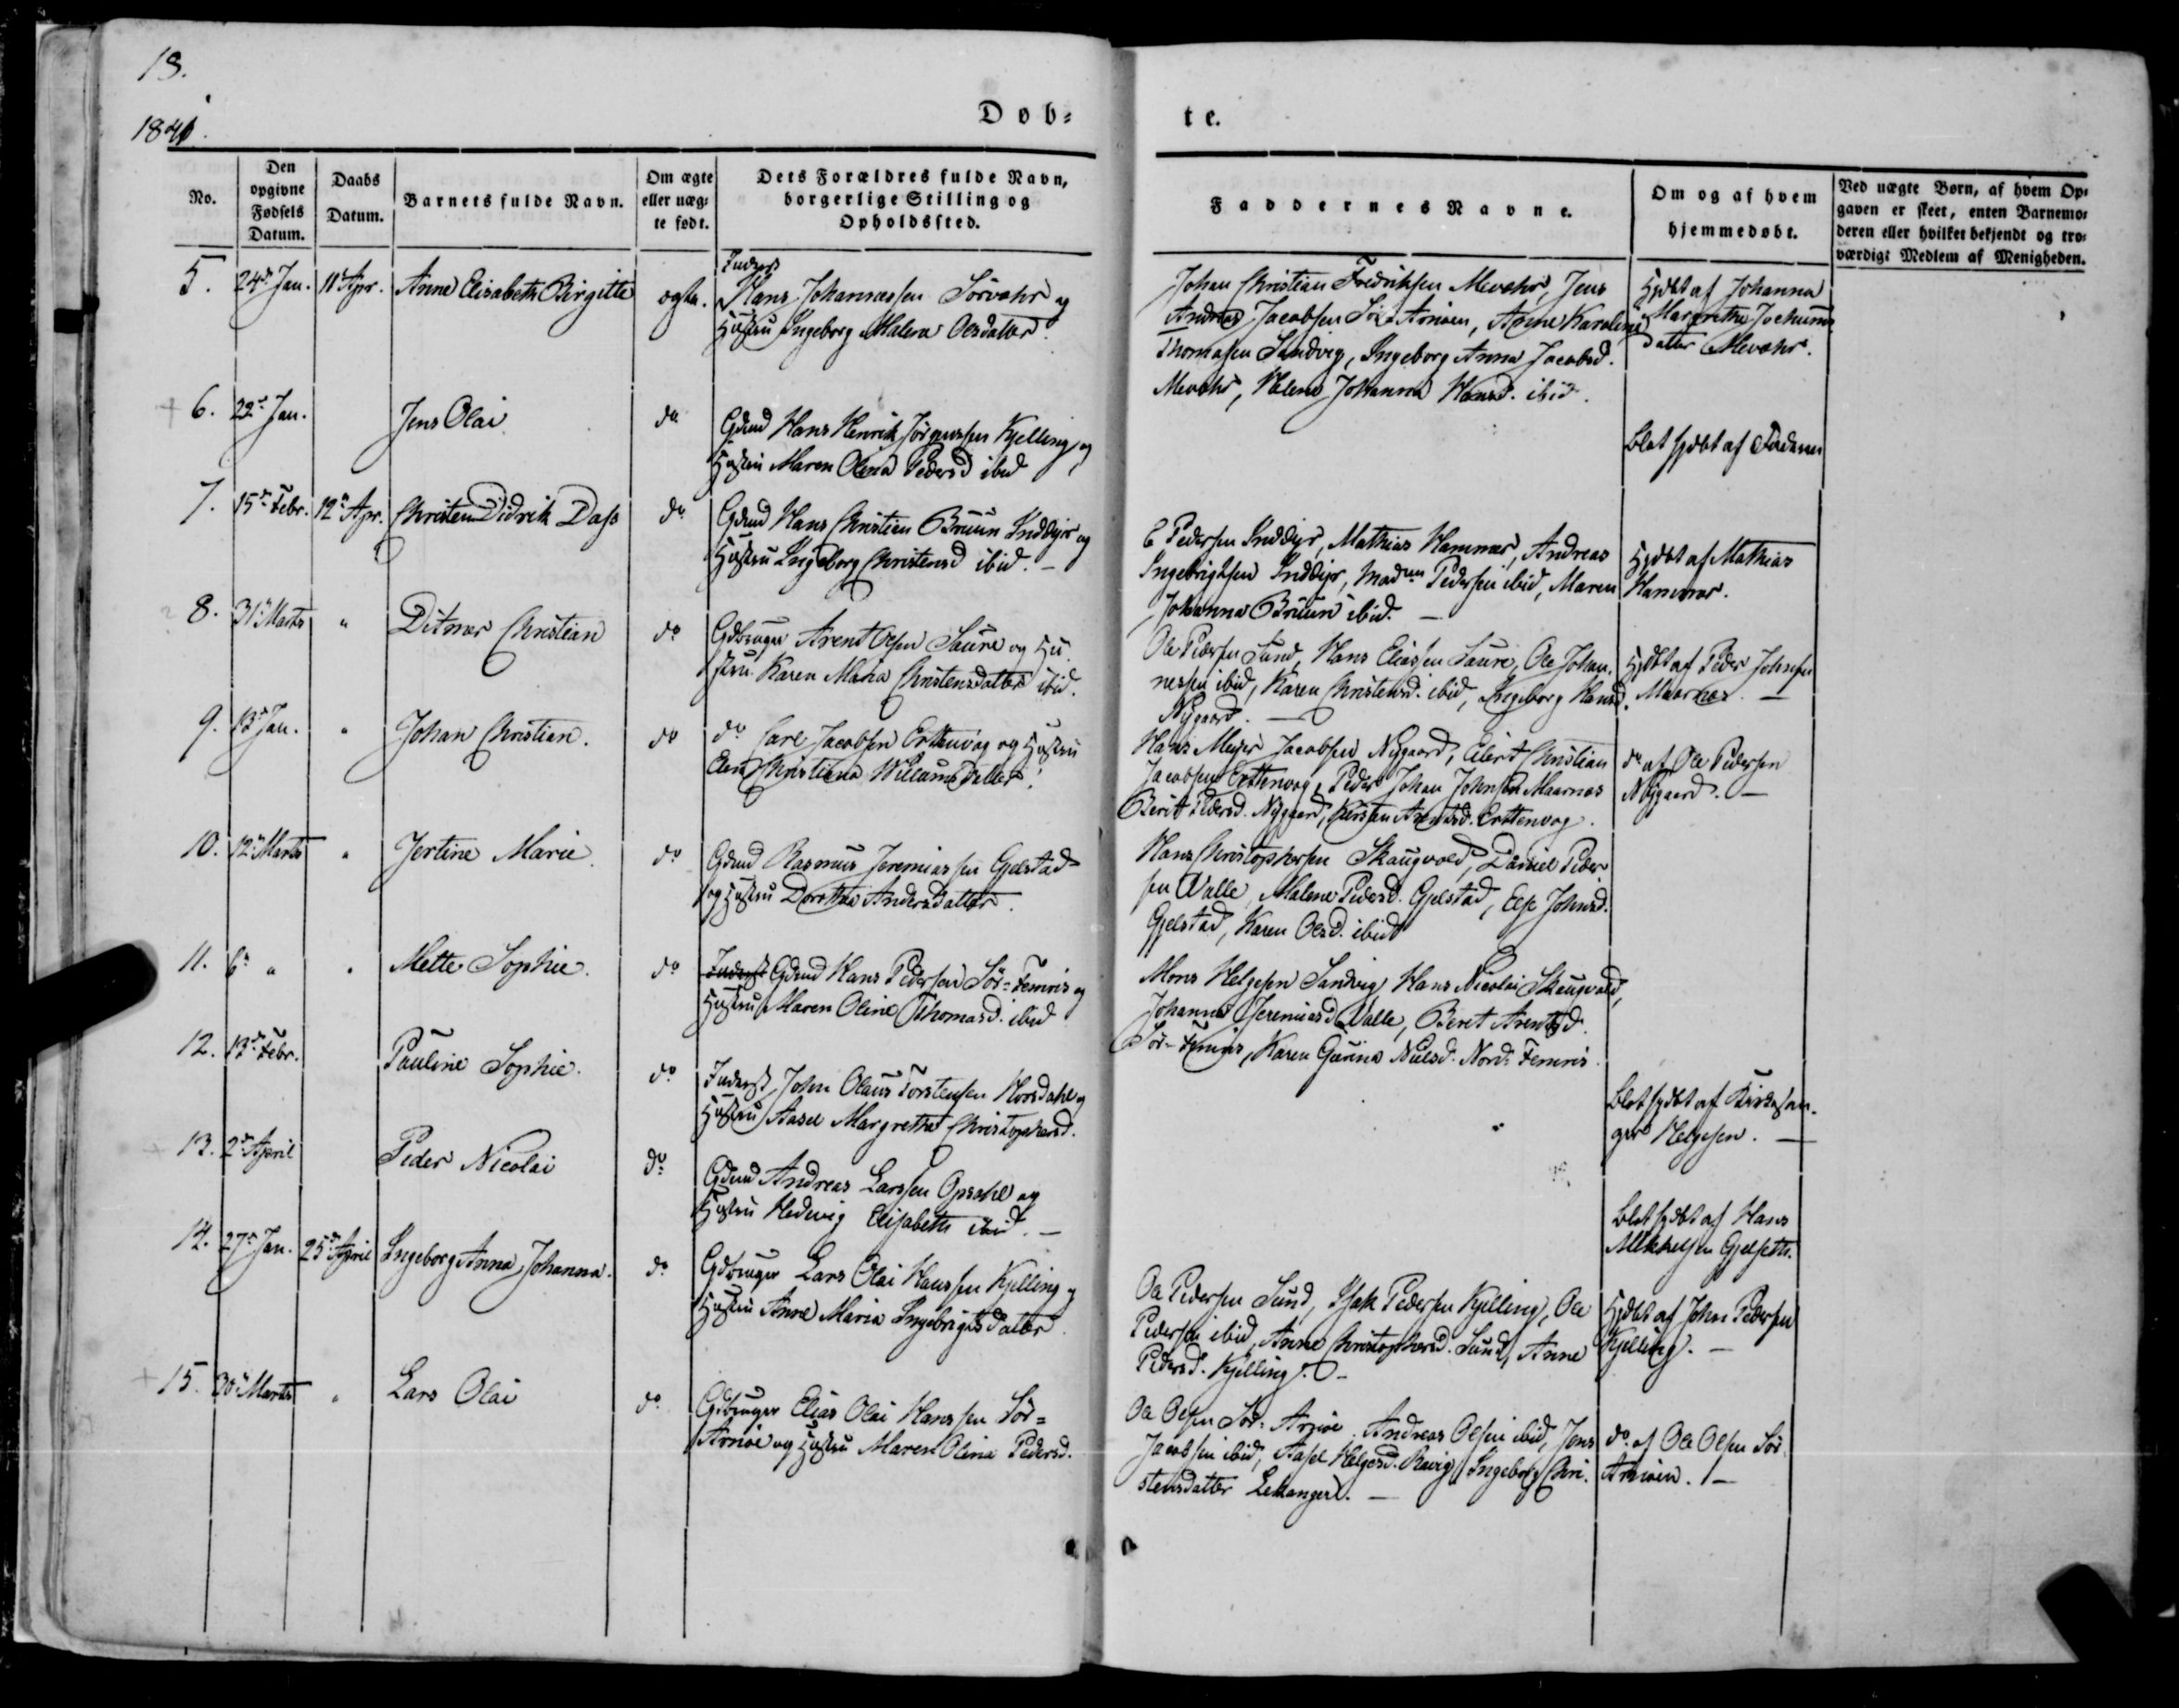 18.
1841.
Døb-
te.
No.
Den opgivne Fødsels Datum.
Daabs Datum.
Barnets fulde Navn.
Om ægte eller uæg- te født.
Dets Forældres fulde Navn, borgerlige Stilling og Opholdssted.
Faddernes Navne.
Om og af hvem hjemmedøbt.
Ved uægte Børn, af hvem Op- gaven er skeet, enten Barnemo- deren eller hvilket bekjendt og tro- værdigt Medlem af Menigheden.
5. 24de Jan. 11te Apr. Anne Elisabeth Birgitte ægte.
Inderst
Hans Johannessen Sörvahr og
Hustru Ingeborg Malena Olsdatter.
Johan Christian Fredriksen Mevahr, Jens
Andreas Jacobsen Sör-Arnöen, Anne Karoline
Thomasen Sandvig, Ingeborg Anna Jacobsd.
Mevahr, Helene Johanna Hansd. ibid.
Hjdbt af Johanna
Margrethe Jochums
datter Mevahr.
+ 6. 22de Jan. Jens Olai do
Gdmd Hans Henrik Jörgensen Kjelling og
Hustru Maren Olena Pedersd ibid
blot hjdbt af Faderen
7. 15de Febr. 12te Apr. Christen Didrik Dass do
Gdmd Hans Christian Bruun Inddyr og
Hustru Ingeborg Christensd ibid. -
C Pedersen Inddyr, Mathias Hammer, Andreas
Ingebrigtsen Inddyr, Madme Pedersen ibid, Maren
Johanna Bruun ibid. -
Hjdbt af Mathias
Hammer.
8. 31te Marts " Ditmar Christian do
Gdbruger Arent Olsen Saure og Hu
stru Karen Maria Christensdatter ibid.
Ole Pedersen Sund, Hans Eliassen Saure, Ole Johan-
nessen ibid, Karen Christensd. ibid, Ingeborg Hansd.
Nygaard. -
Hjdbt af Peder Johnsen
Maarnæs. -
9. 13de Jan. " Johan Christian. do
do Carl Jacobsen Ertenvag og Hustru
Elen Christiana Willumsdatter.
Hans Meyer Jacobsen Nygaard, Eilert Christian
Jacobsen Ertenvag, Peder Johan Johnsen Maarnæs
Berit Pedersd. Nygaard, Kirsten Arentsd. Ertenvag.
do af Ole Pedersen
Nygaard. -
10. 12te Marts " Jertine Marie. do
Gdmd Rasmus Jeremiassen Gjelstad
og Hustru Dorothea Andersdatter.
Hans Christophersen Skaugvold, Daniel Peder
sen Valle, Malene Pedersd. Gjelstad, Else Johnsd.
Gjelstad, Karen Olsd. ibid
11. 6te " " Mette Sophie. do
Inderst Gdmd Hans Pedersen Sör-Femris og
Hustru Maren Oline Thomasd. ibid
Mons Helgesen Sandvig, Hans Nicolai Skaugvold,
Johanna Jeremiasd Valle, Beret Arentsd.
Sör-Femris, Karen Gurina Nielsd. Nord-Femris.
12. 13de Febr. Pauline Sophie. do
Inderst John Olaus Torstensen Horsdahl og
Hustru Aasel Margretha Christophersd.
blot hjdbt af Kirkesan-
ger Helgesen. -
+ 13. 2de April Peder Nicolai do
Gdmd Andreas Larssen Opsahl og
Hustru Hedevig Elisabeth ibid. -
blot hjdbt af Hans
Mikkelsen Gjelseth.
14. 27de Jan. 25de April Ingeborg Anna Johanna. do
Gdbruger Lars Olai Hanssen Kjelling og
Hustru Anne Maria Ingebrigtsdatter.
Ole Pedersen Sund, Isak Pedersen Kjelling, Ole
Pedersen ibid, Anne Christophersd. Sund, Anne
Pedersd. Kjelling. -
Hjdbt af John Pedersen
Kjelling. -
+ 15. 30te Marts " Lars Olai do
Gdbruger Elias Olai Hanssen Sör-
Arnöe og Hustru Maren Olina Pedersd.
Ole Olsen Sör-Arnöe. Andreas Olsen ibid, Jens
Jacobsen ibid, Aasel Helgesd. Ravig, Ingeborg Chri-
stensdatter Lekanger. -
do af Ole Olsen Sör
Arnöen. -